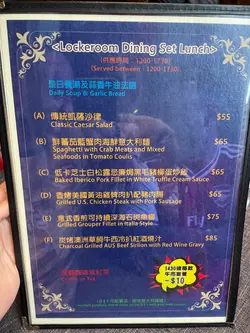 <Lockeroom Dining Set Lunch>
(供應時間 : 1200-1730)
(Served between : 1200-1730)
是日餐湯及蒜香牛油法麵
Daily Soup & Garlic Bread
(A) 傳統凱薩沙律 $55
Classic Caesar Salad
(B) 鮮蕃茄藍蟹肉海鮮意大利麵 $65
Spaghetti with Crab Meats and Mixed
Seafoods in Tomato Coulis
(C) 低卡芝士白松露忌廉焗黑毛豬柳蛋炒飯 $65
Baked Iberico Pork Fillet in White Truffle Cream Sauce
(D) 香烤美國黃油雞髀肉扒配豬肉腸 $65
Grilled U.S. Chicken Steak with Pork Sausage
(E) 意式香煎可持續深海石斑魚柳 $75
Grilled Grouper Fillet in Italia Style
(F) 炭烤澳洲草飼牛西冷扒紅酒燒汁 $85
Charcoal Grilled AUS Beef Sirloin with Red Wine Gravy
1430後惠顧
$10
Coffee or Tea